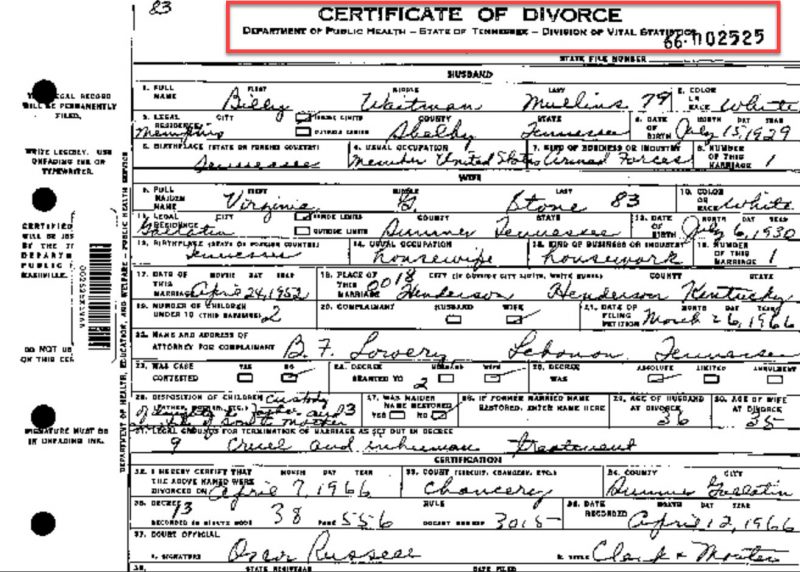 83
CERTIFICATE OF DIVORCE
DEPARTMENT OF PUBLIC HEALTH – STATE OF TENNESSEE – DIVISION OF VITAL STATISTICS
66-002525
STATE FILE NUMBER
HUSBAND
1. FULL NAME FIRST MIDDLE LAST 2. COLOR OR RACE
Billy Waitman Mullins 79 White
3. LEGAL RESIDENCE CITY INSIDE LIMITS OUTSIDE LIMITS COUNTY STATE 4. DATE OF BIRTH MONTH DAY YEAR
Memphis Shelby Tennessee July 15, 1929
5. BIRTHPLACE (STATE OR FOREIGN COUNTRY) 6. USUAL OCCUPATION 7. KIND OF BUSINESS OR INDUSTRY 8. NUMBER OF THIS MARRIAGE
Tennessee Member United States Armed Forces 1
WIFE
9. FULL MAIDEN NAME FIRST MIDDLE LAST 10. COLOR OR RACE
Virginia G. Stone 83 White
11. LEGAL RESIDENCE CITY INSIDE LIMITS OUTSIDE LIMITS COUNTY STATE 12. DATE OF BIRTH MONTH DAY YEAR
Gallatin Sumner Tennessee July 6, 1930
13. BIRTHPLACE (STATE OR FOREIGN COUNTRY) 14. USUAL OCCUPATION 15. KIND OF BUSINESS OR INDUSTRY 16. NUMBER OF THIS MARRIAGE
Tennessee housewife housework 1
17. DATE OF THIS MARRIAGE MONTH DAY YEAR 18. PLACE OF THIS MARRIAGE CITY (IF OUTSIDE CITY LIMITS, WRITE RURAL) COUNTY STATE
April 24, 1952 0018 Henderson Henderson Kentucky
19. NUMBER OF CHILDREN UNDER 18 (THIS MARRIAGE) 2 20. COMPLAINANT HUSBAND WIFE 21. DATE OF FILING PETITION MONTH DAY YEAR
March 26, 1966
22. NAME AND ADDRESS OF ATTORNEY FOR COMPLAINANT
B. F. Lowery Lebanon, Tennessee
23. WAS CASE CONTESTED YES NO 24. DECREE GRANTED TO 2 HUSBAND WIFE 25. DECREE WAS ABSOLUTE LIMITED ANNULMENT
26. DISPOSITION OF CHILDREN (FATHER, MOTHER, ETC.) 27. WAS MAIDEN NAME RESTORED YES NO 28. IF FORMER MARRIED NAME RESTORED, ENTER NAME HERE 29. AGE OF HUSBAND AT DIVORCE 30. AGE OF WIFE AT DIVORCE
Custody of daughter to father and 3
of son to mother
36 35
31. LEGAL GROUNDS FOR TERMINATION OF MARRIAGE AS SET OUT IN DECREE
9 Cruel and inhuman treatment
CERTIFICATION
32. I HEREBY CERTIFY THAT THE ABOVE NAMED WERE DIVORCED ON MONTH DAY YEAR 33. COURT (CIRCUIT, CHANCERY, ETC.) 34. COUNTY CITY
April 7, 1966 Chancery Sumner Gallatin
35. DECREE RECORDED IN MINUTE BOOK PAGE RULE DOCKET NUMBER 36. DATE RECORDED MONTH DAY YEAR
13 38 556 3015 April 12, 1966
37. COURT OFFICIAL
1. SIGNATURE Oscar Russell 2. TITLE Clerk & Master
38. STATE REGISTRAR DATE FILED
LEGAL RECORD
WILL BE PERMANENTLY
FILED.
WRITE LEGIBLY. USE
UNFADING INK OR
TYPEWRITER.
CERTIFIED
BY THE
PUBLIC
NASHVILLE.
DO NOT
ON THIS
SIGNATURE MUST BE
IN UNFADING INK.
DEPARTMENT OF HEALTH, EDUCATION, AND WELFARE – PUBLIC HEALTH SERVICE